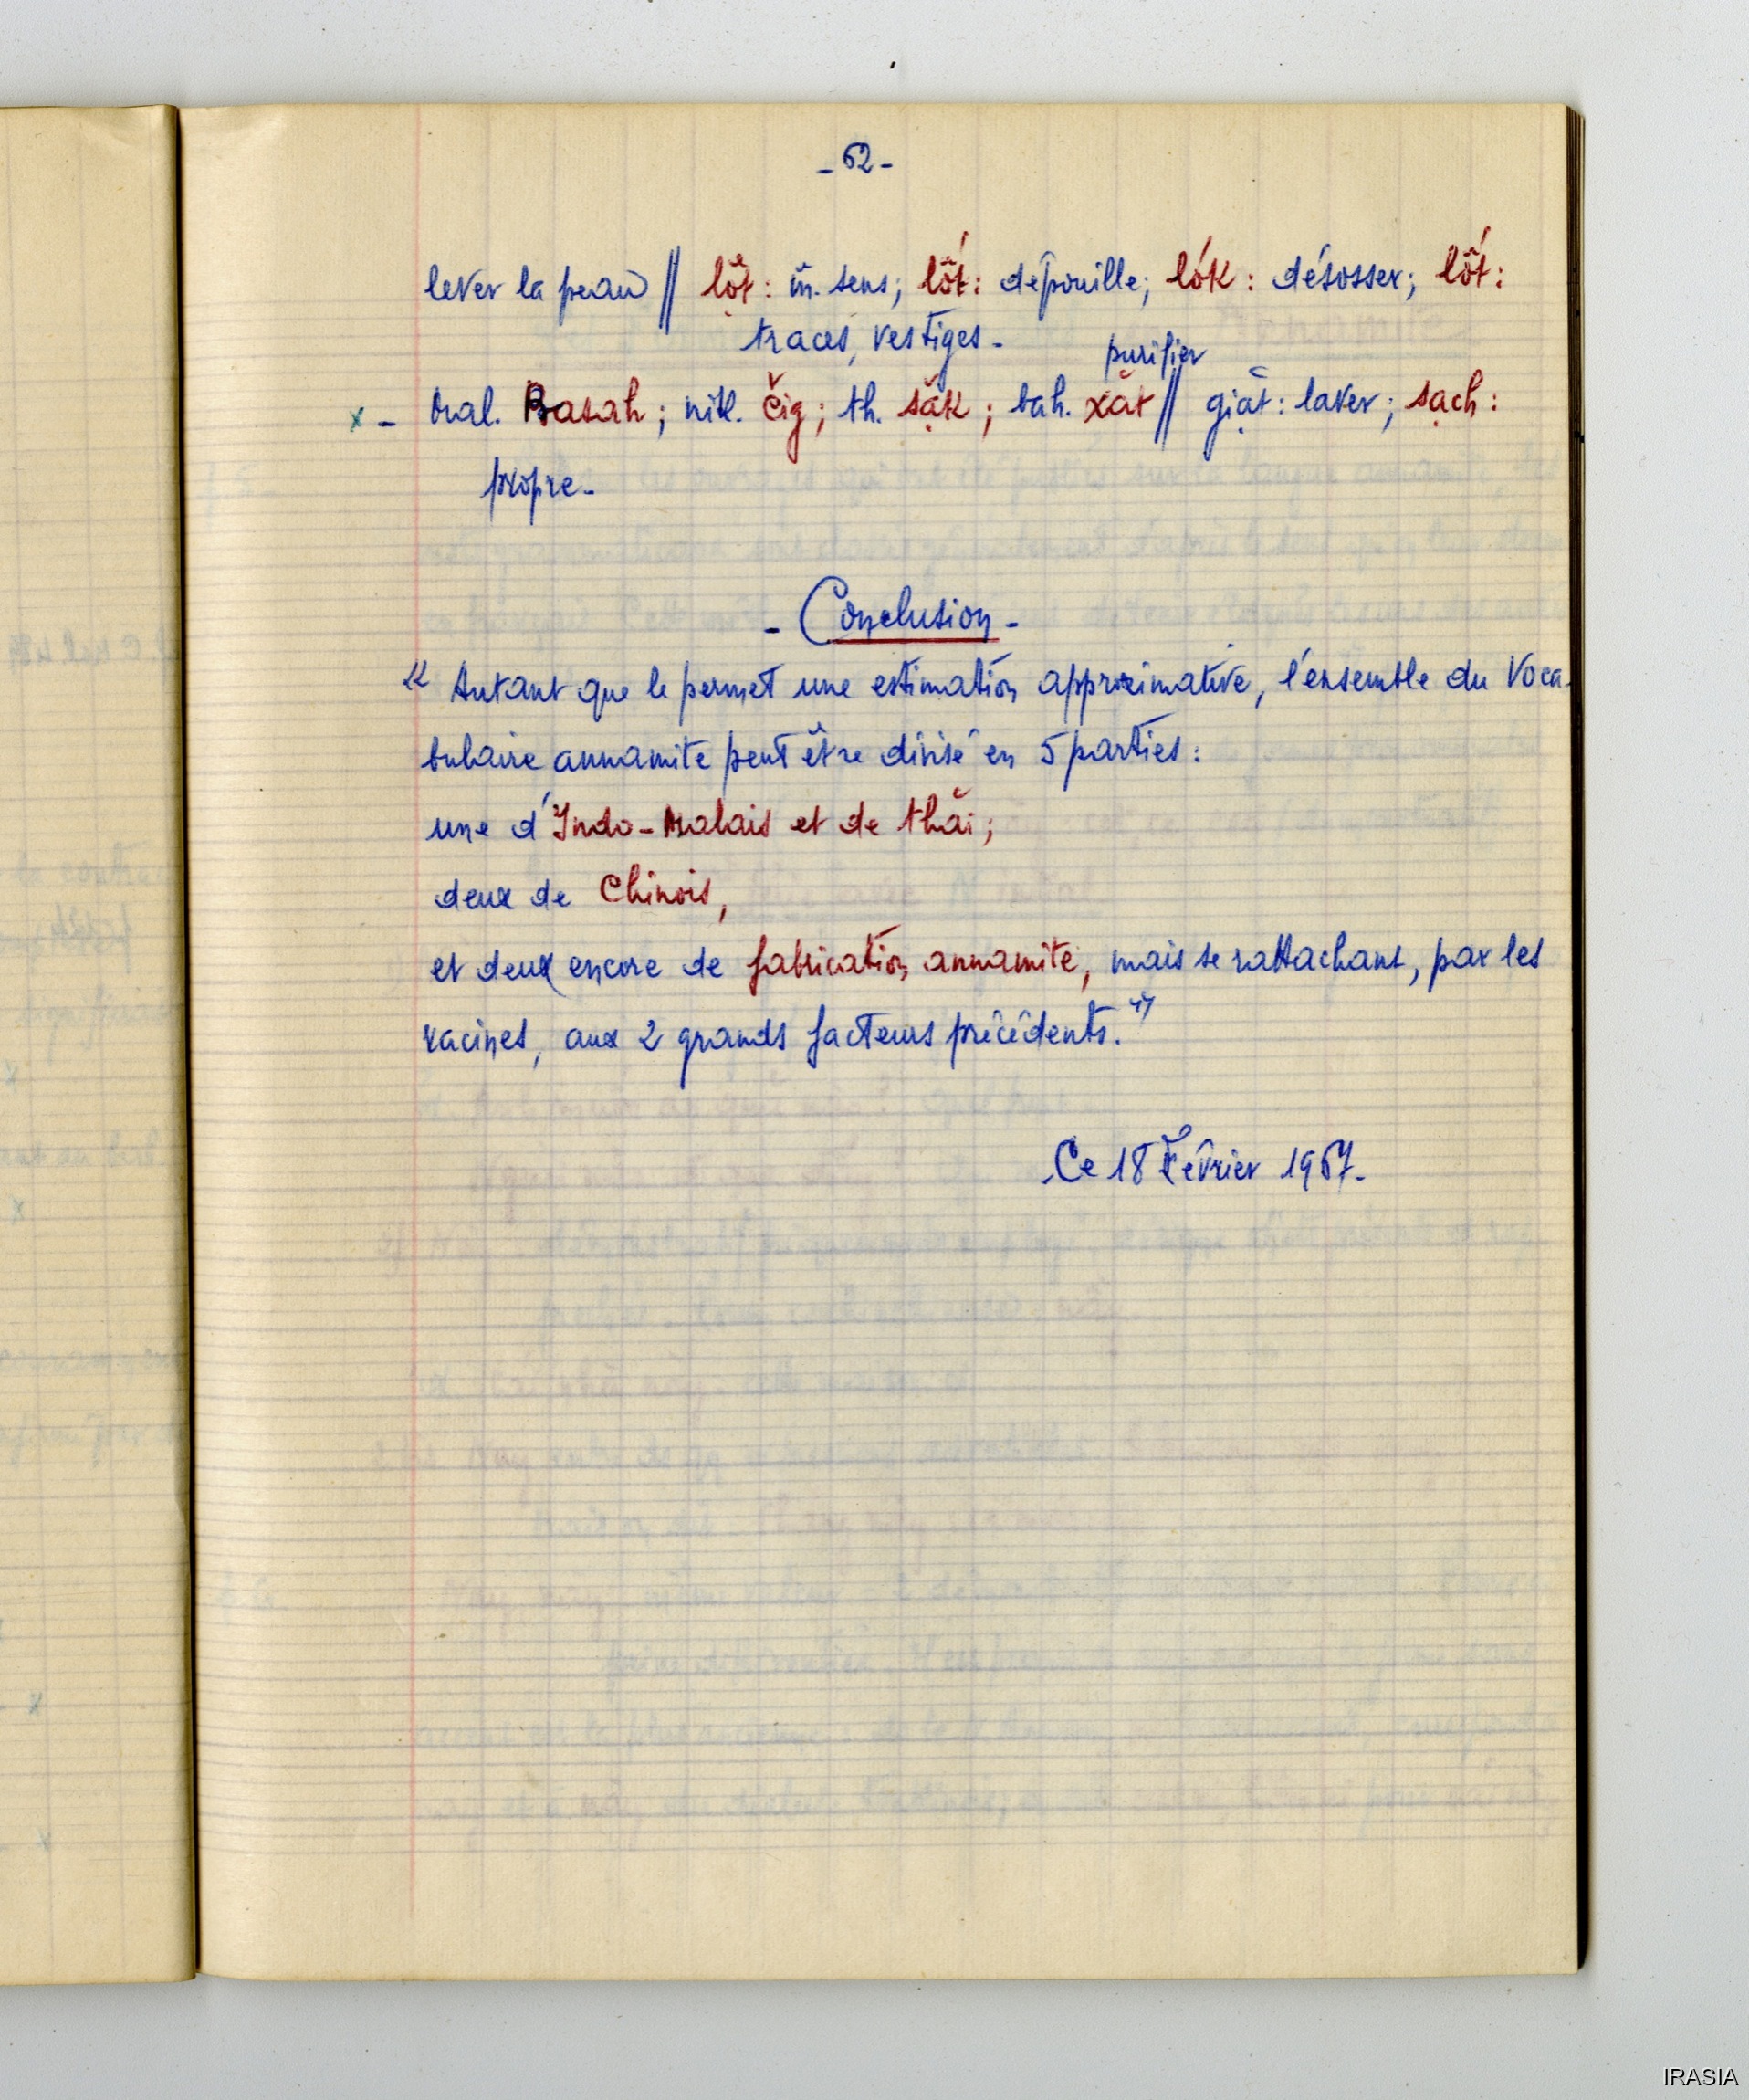 - 62 -
lever la peau // lột: m̄. sens; lốt: dépouille; lók: désosser; lốt:
traces, vestiges -
purifier
x - mal. Basah; nik. čig; th. săk; bah. xăt // giặt: laver; sạch:
propre -
- Conclusion -
" Autant que le permet une estimation approximative, l'ensemble du Voca-
bulaire annamite peut être divisé en 5 parties:
une d'Indo-Malais et de thăi;
deux de Chinois,
et deux encore de fabrication annamite, mais se rattachant, par les
racines, aux 2 grands facteurs précédents. "
Ce 18 Février 1967 -
IRASIA